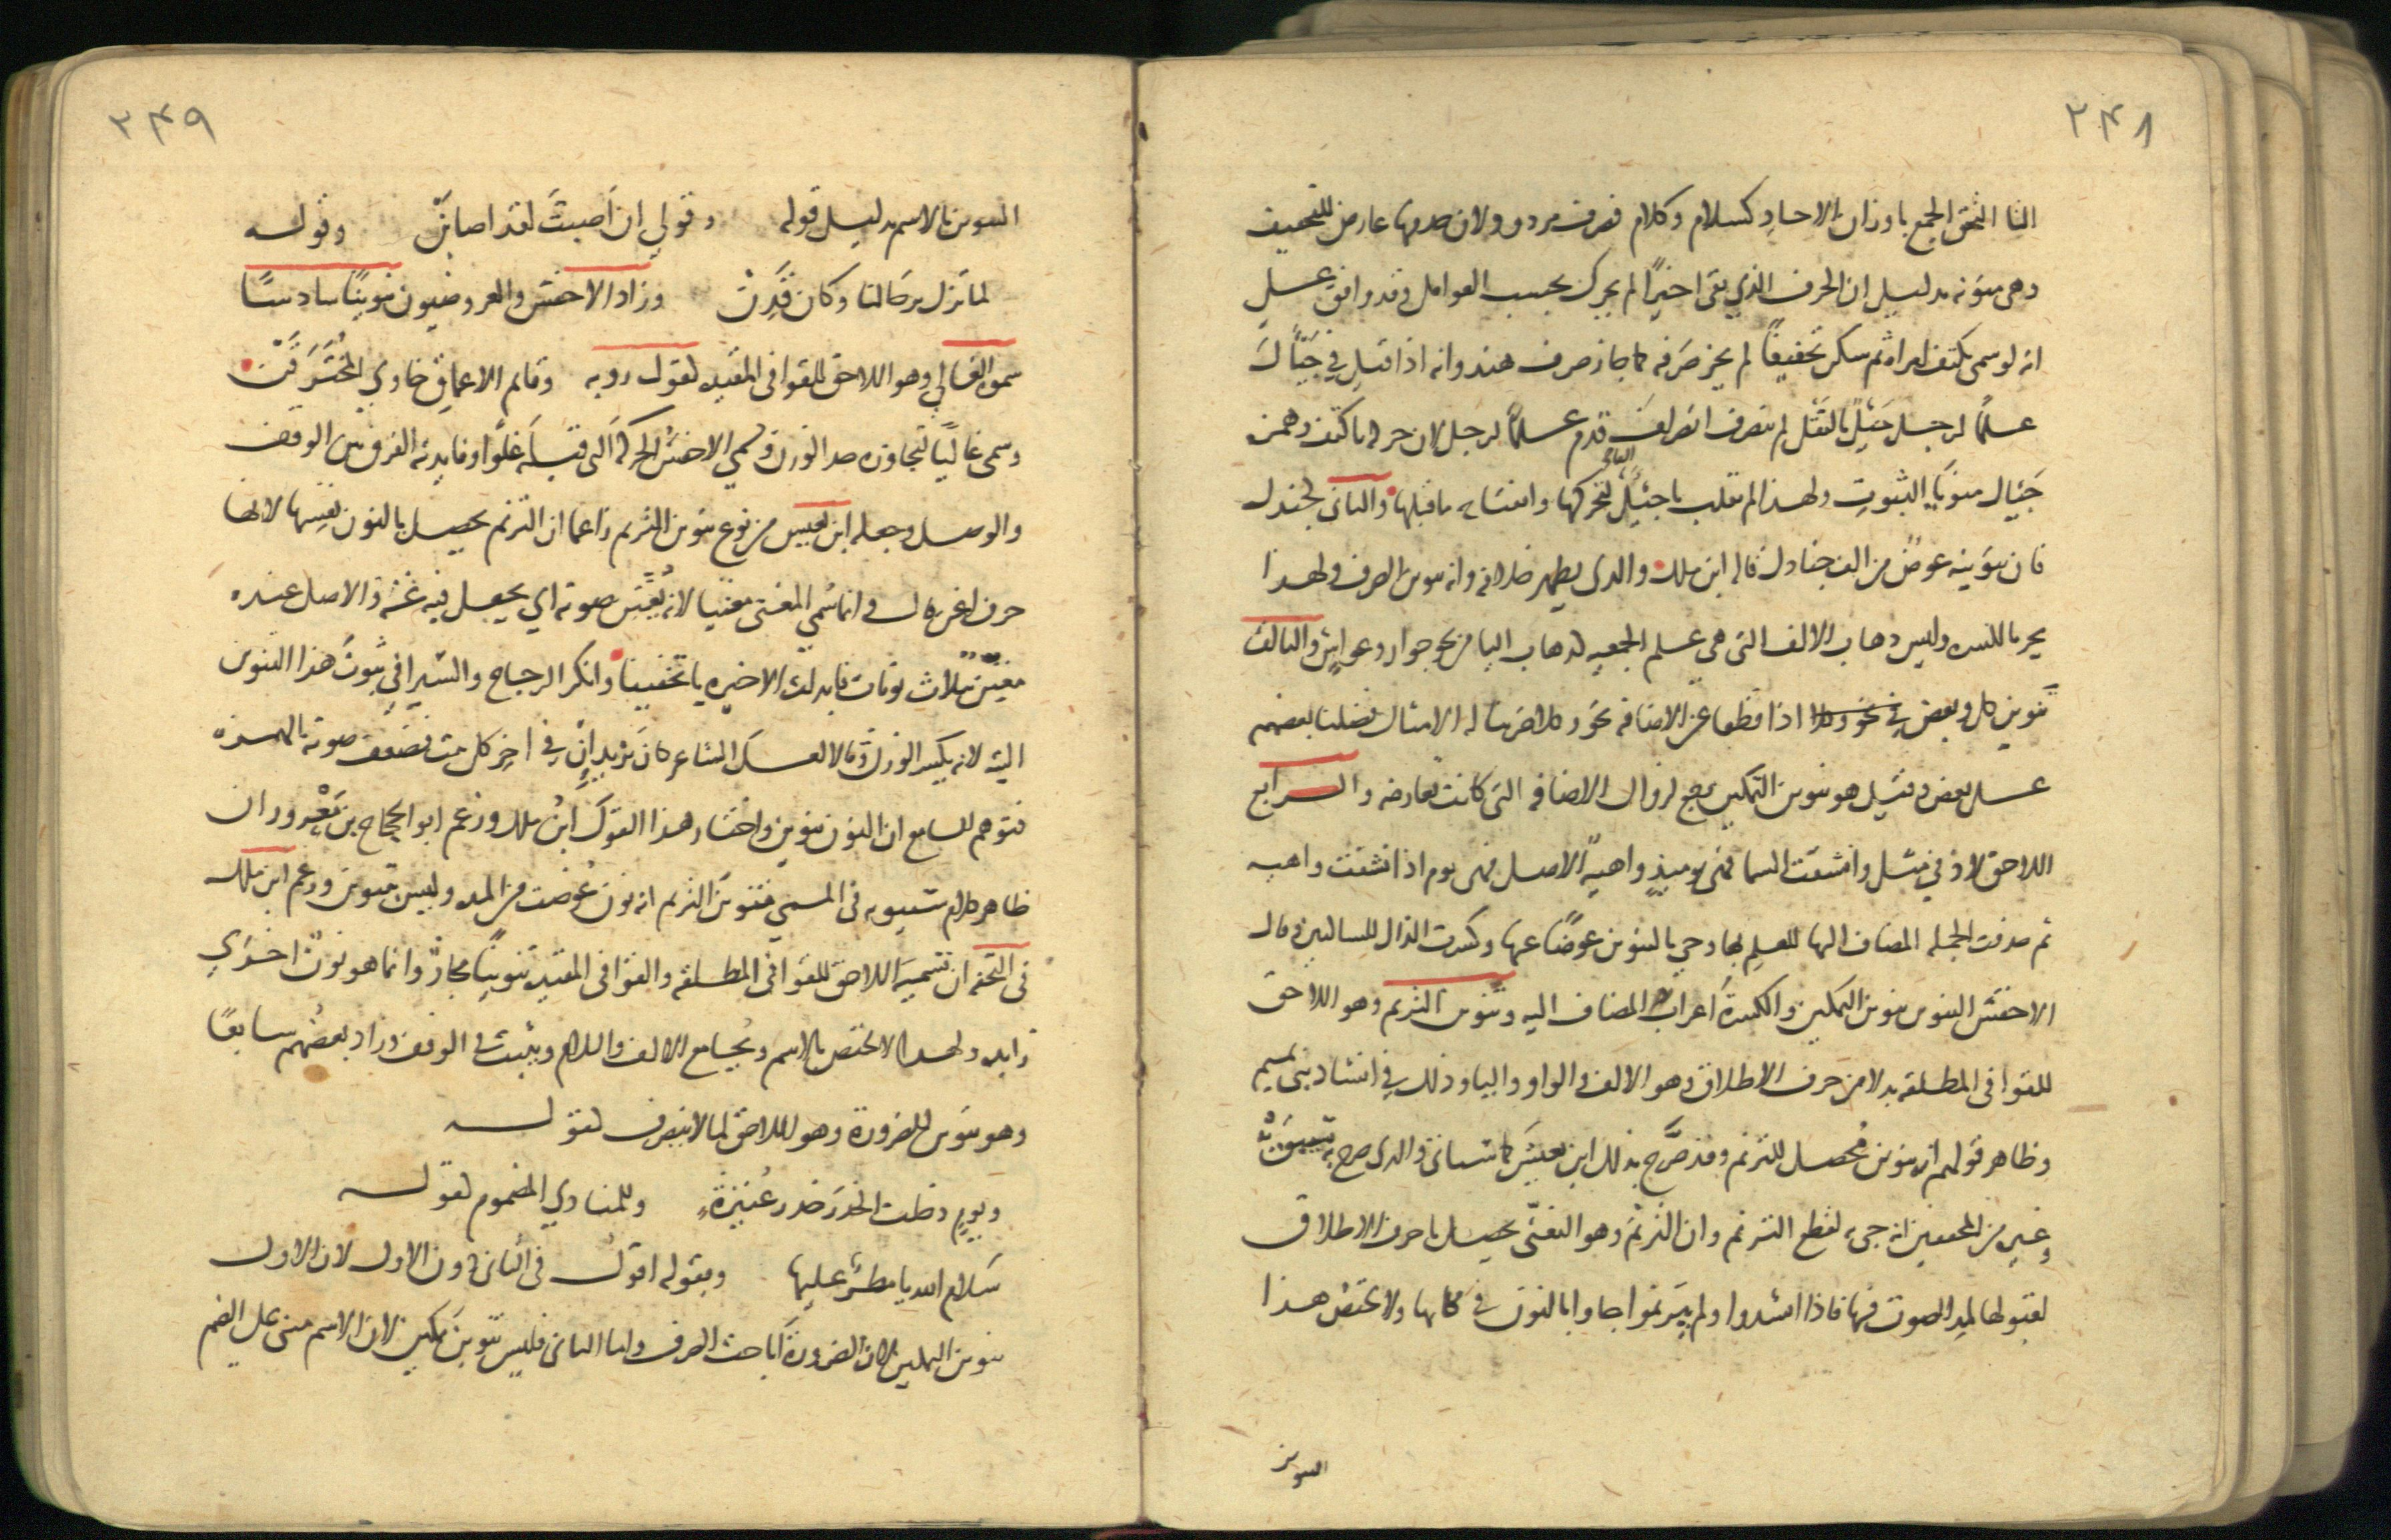 ٣٤٨
اليا التحق الجمع باوزان الاحاد كسلام وكلام فصرف مردود لان حذفها عارض للتخفيف
وهى منوية بدليل ان الحرف الذي بقى اخيرًا لم يحرك بحسب العوامل وقد وافق على
انه لو سمى بكتف امراة ثم سكن تخفيفًا لم يجز صرفه كما جاز صرف هند وانه اذا قيل في جيئال
علمًا لرجل جَيَلٌ بالنقل لم ينصرف انصراف قدم علمًا لرجل لان حركة تا كتف وهمزة
جَيْئال منويا الثبوت ولهذا لم تقلب يا جيئل الفا لتحركها وانفتاح ما قبلها والثانى لجندل
فان تنوينه عوضٌ من الف جنادل قاله ابن ملك والذى يظهر خلافه وانه تنوين الصرف ولهذا
يجر بالكسرة وليس ذهاب الالف التى هى علم الجمعيه كذهاب اليا من نحو جوار وغواش والثالث
تنوين كل وبعض اذا قطعا عن الاضافه نحو وكلا ضربنا له الامثال فضلنا بعضهم
على بعض وقيل هو تنوين التمكين رجع لزوال الاضافه التى كانت تعارضه والرابع
اللاحق لاذ في مثل وانشقت السما فهى يوميذٍ واهيةٌ الاصل فهى يوم اذ انشقت واهيه
ثم حذفت الجمله المضاف اليها للعلم بها وجي بالتنوين عوضًا عنها وكسرت الذال للساكنين وقال
الاخفش التنوين تنوين التمكين والكسرة اعراب المضاف اليه وتنوين الترنم وهو اللاحق
للقوافى المطلقه بدلا من حرف الاطلاق وهو الالف والواو واليا وذلك في انشاد بنى تميم
وظاهر قولهم انه تنوين مُحصل للترنم وقد صرَّح بذلك ابن يعيش كما سياتى والذى صرح به سيبويه
وغيره من المحققين انه جىء به لقطع الترنم وان الترنمَ وهو التغنّى يحصل باحرف الاطلاق
لقبولها لمد الصوت فيها فاذا انشدوا ولم يترنموا جاوا بالنون في مكانها ولا يختص هذا
التنوين
٣٤٩
التنوين بالاسم بدليل قوله وقولي ان أصبتَ لقد اصابَنْ وقولـه
لما تَزُل برحالنا وكان قَدِنْ وزاد الاخفش والعروضيون تنوينًا سادسًا
سموه الغالي وهو اللاحق للقوافى المقيدة كقول روبه وقاتم الاعماق خاوي المخترَقَنْ
وسمى غاليًا لتجاوزه حد الوزن وسمى الاخفش الحركة التى قبله غلوًا وفايدته الفرق بين الوقف
والوصل وجعله ابن يعيش من نوع تنوين الترنم زاعما ان الترنم يحصل بالنون نفسها لانها
حرف اغن قال وانما سُمي المغنى مغنيا لانه يُغنن صوته اي يجعل فيه غنة والاصل عنده
مغنن بثلاث نونات فابدلت الاخيره يا تخفيفا وانكر الزجاج والسيرافي ثبوتَ هذا التنوين
البتة لانه يكسر الوزن وقالا لعل الشاعر كان يزيد ان في اخر كل بيت فضعف صوته بالهمزة
فتوهم السامع ان النون تنوين واختار هذا القول ابنُ ملك وزعم ابو الحجاج بن مَعْزوز ان
ظاهر كلام سيبويه فى المسمى تنوينَ الترنم انه نونٌ عُوضت من المدة وليس بتنوين وزعم ابن ملك
فى التحفه ان تسميةَ اللاحق للقوافى المطلقه والقوافى المقيدة تنوينًا مجازٌ وانما هو نونٌ اخرى
زايده ولهذا لا تختص بالاسم ويُجامع الالف واللام ويثبت فى الوقف وزاد بعضُهم سابعًا
وهو تنوين للضرورة وهو اللاحق لما لا ينصرف كقولـه
ويوم دخلت الخدرَ خدر عُنيزةٍ وللمنادي المضموم كقولـه
سَلام الله يا مطرٌ عليها وبقوله اقول فى الثانى دون الاول لان الاول
تنوين التمكين لان الضرورة اباحت الصرف واما الثانى فليس تنوينَ تمكين لان الاسم مبنى على الضم